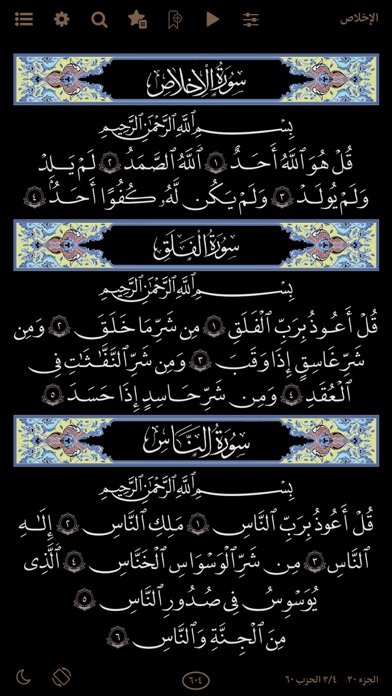 الإخلاص
سُورَةُ الإِخْلَاصِ
بِسْمِ ٱللَّهِ ٱلرَّحْمَٰنِ ٱلرَّحِيمِ
قُلْ هُوَ ٱللَّهُ أَحَدٌ ١ ٱللَّهُ ٱلصَّمَدُ ٢ لَمْ يَلِدْ
وَلَمْ يُولَدْ ٣ وَلَمْ يَكُن لَّهُۥ كُفُوًا أَحَدٌۢ ٤
سُورَةُ الفَلَقِ
بِسْمِ ٱللَّهِ ٱلرَّحْمَٰنِ ٱلرَّحِيمِ
قُلْ أَعُوذُ بِرَبِّ ٱلْفَلَقِ ١ مِن شَرِّ مَا خَلَقَ ٢ وَمِن
شَرِّ غَاسِقٍ إِذَا وَقَبَ ٣ وَمِن شَرِّ ٱلنَّفَّٰثَٰتِ فِى
ٱلْعُقَدِ ٤ وَمِن شَرِّ حَاسِدٍ إِذَا حَسَدَ ٥
سُورَةُ النَّاسِ
بِسْمِ ٱللَّهِ ٱلرَّحْمَٰنِ ٱلرَّحِيمِ
قُلْ أَعُوذُ بِرَبِّ ٱلنَّاسِ ١ مَلِكِ ٱلنَّاسِ ٢ إِلَٰهِ
ٱلنَّاسِ ٣ مِن شَرِّ ٱلْوَسْوَاسِ ٱلْخَنَّاسِ ٤ ٱلَّذِى
يُوَسْوِسُ فِى صُدُورِ ٱلنَّاسِ ٥
مِنَ ٱلْجِنَّةِ وَٱلنَّاسِ ٦
الجزء ٣٠ ٣/٤ الحزب ٦٠
٦٠٤